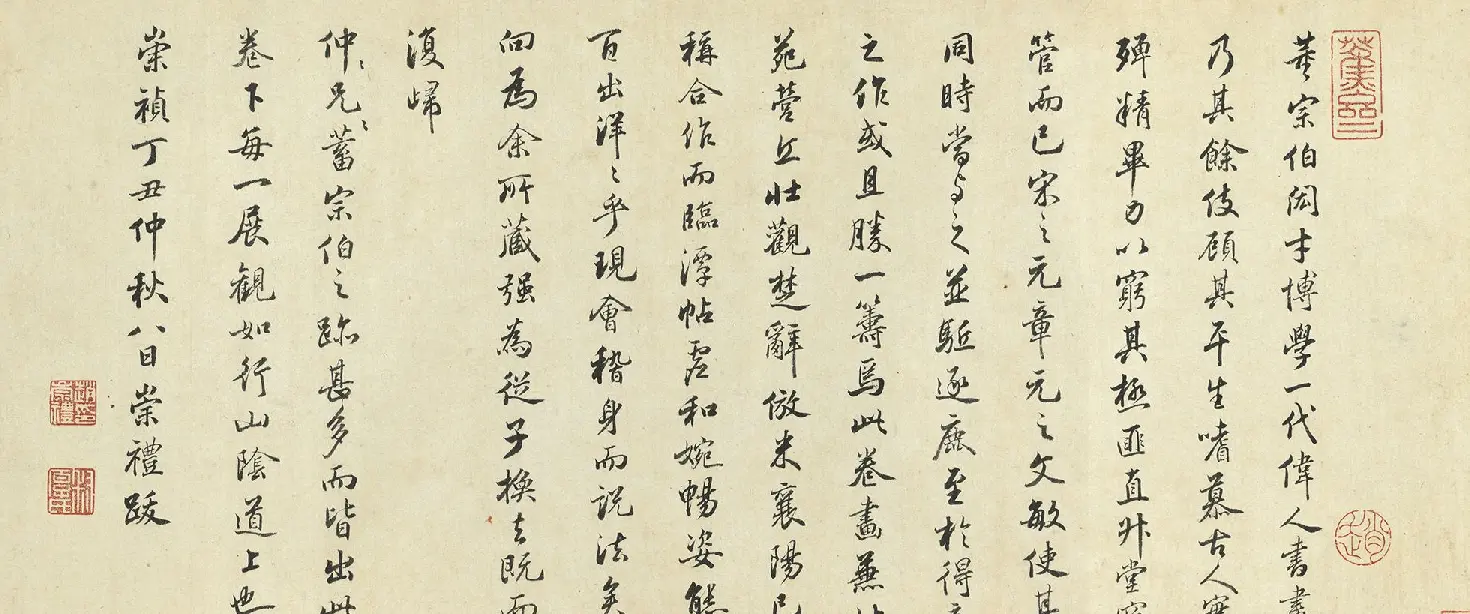 董宗伯閎才博學一代偉人書畫
乃其餘伎顧其平生嗜慕古人
殫精畢力以窮其極匪直升堂
管而已宋之元章元之文敏使其
同時當与之並駈逐鹿至於得意
之作或且勝一籌焉此卷畫兼
苑營丘壯觀楚辭倣米襄陽已
稱合作而臨潭帖虛和婉暢姿態
百出洋〻乎現宰官身而說法矣
向為余所藏强為從子換去既而
復歸
仲〻兄〻蓄宗伯之跡甚多而皆出此
卷下每一展觀如行山陰道上也
崇禎丁丑仲秋八日崇禮跋